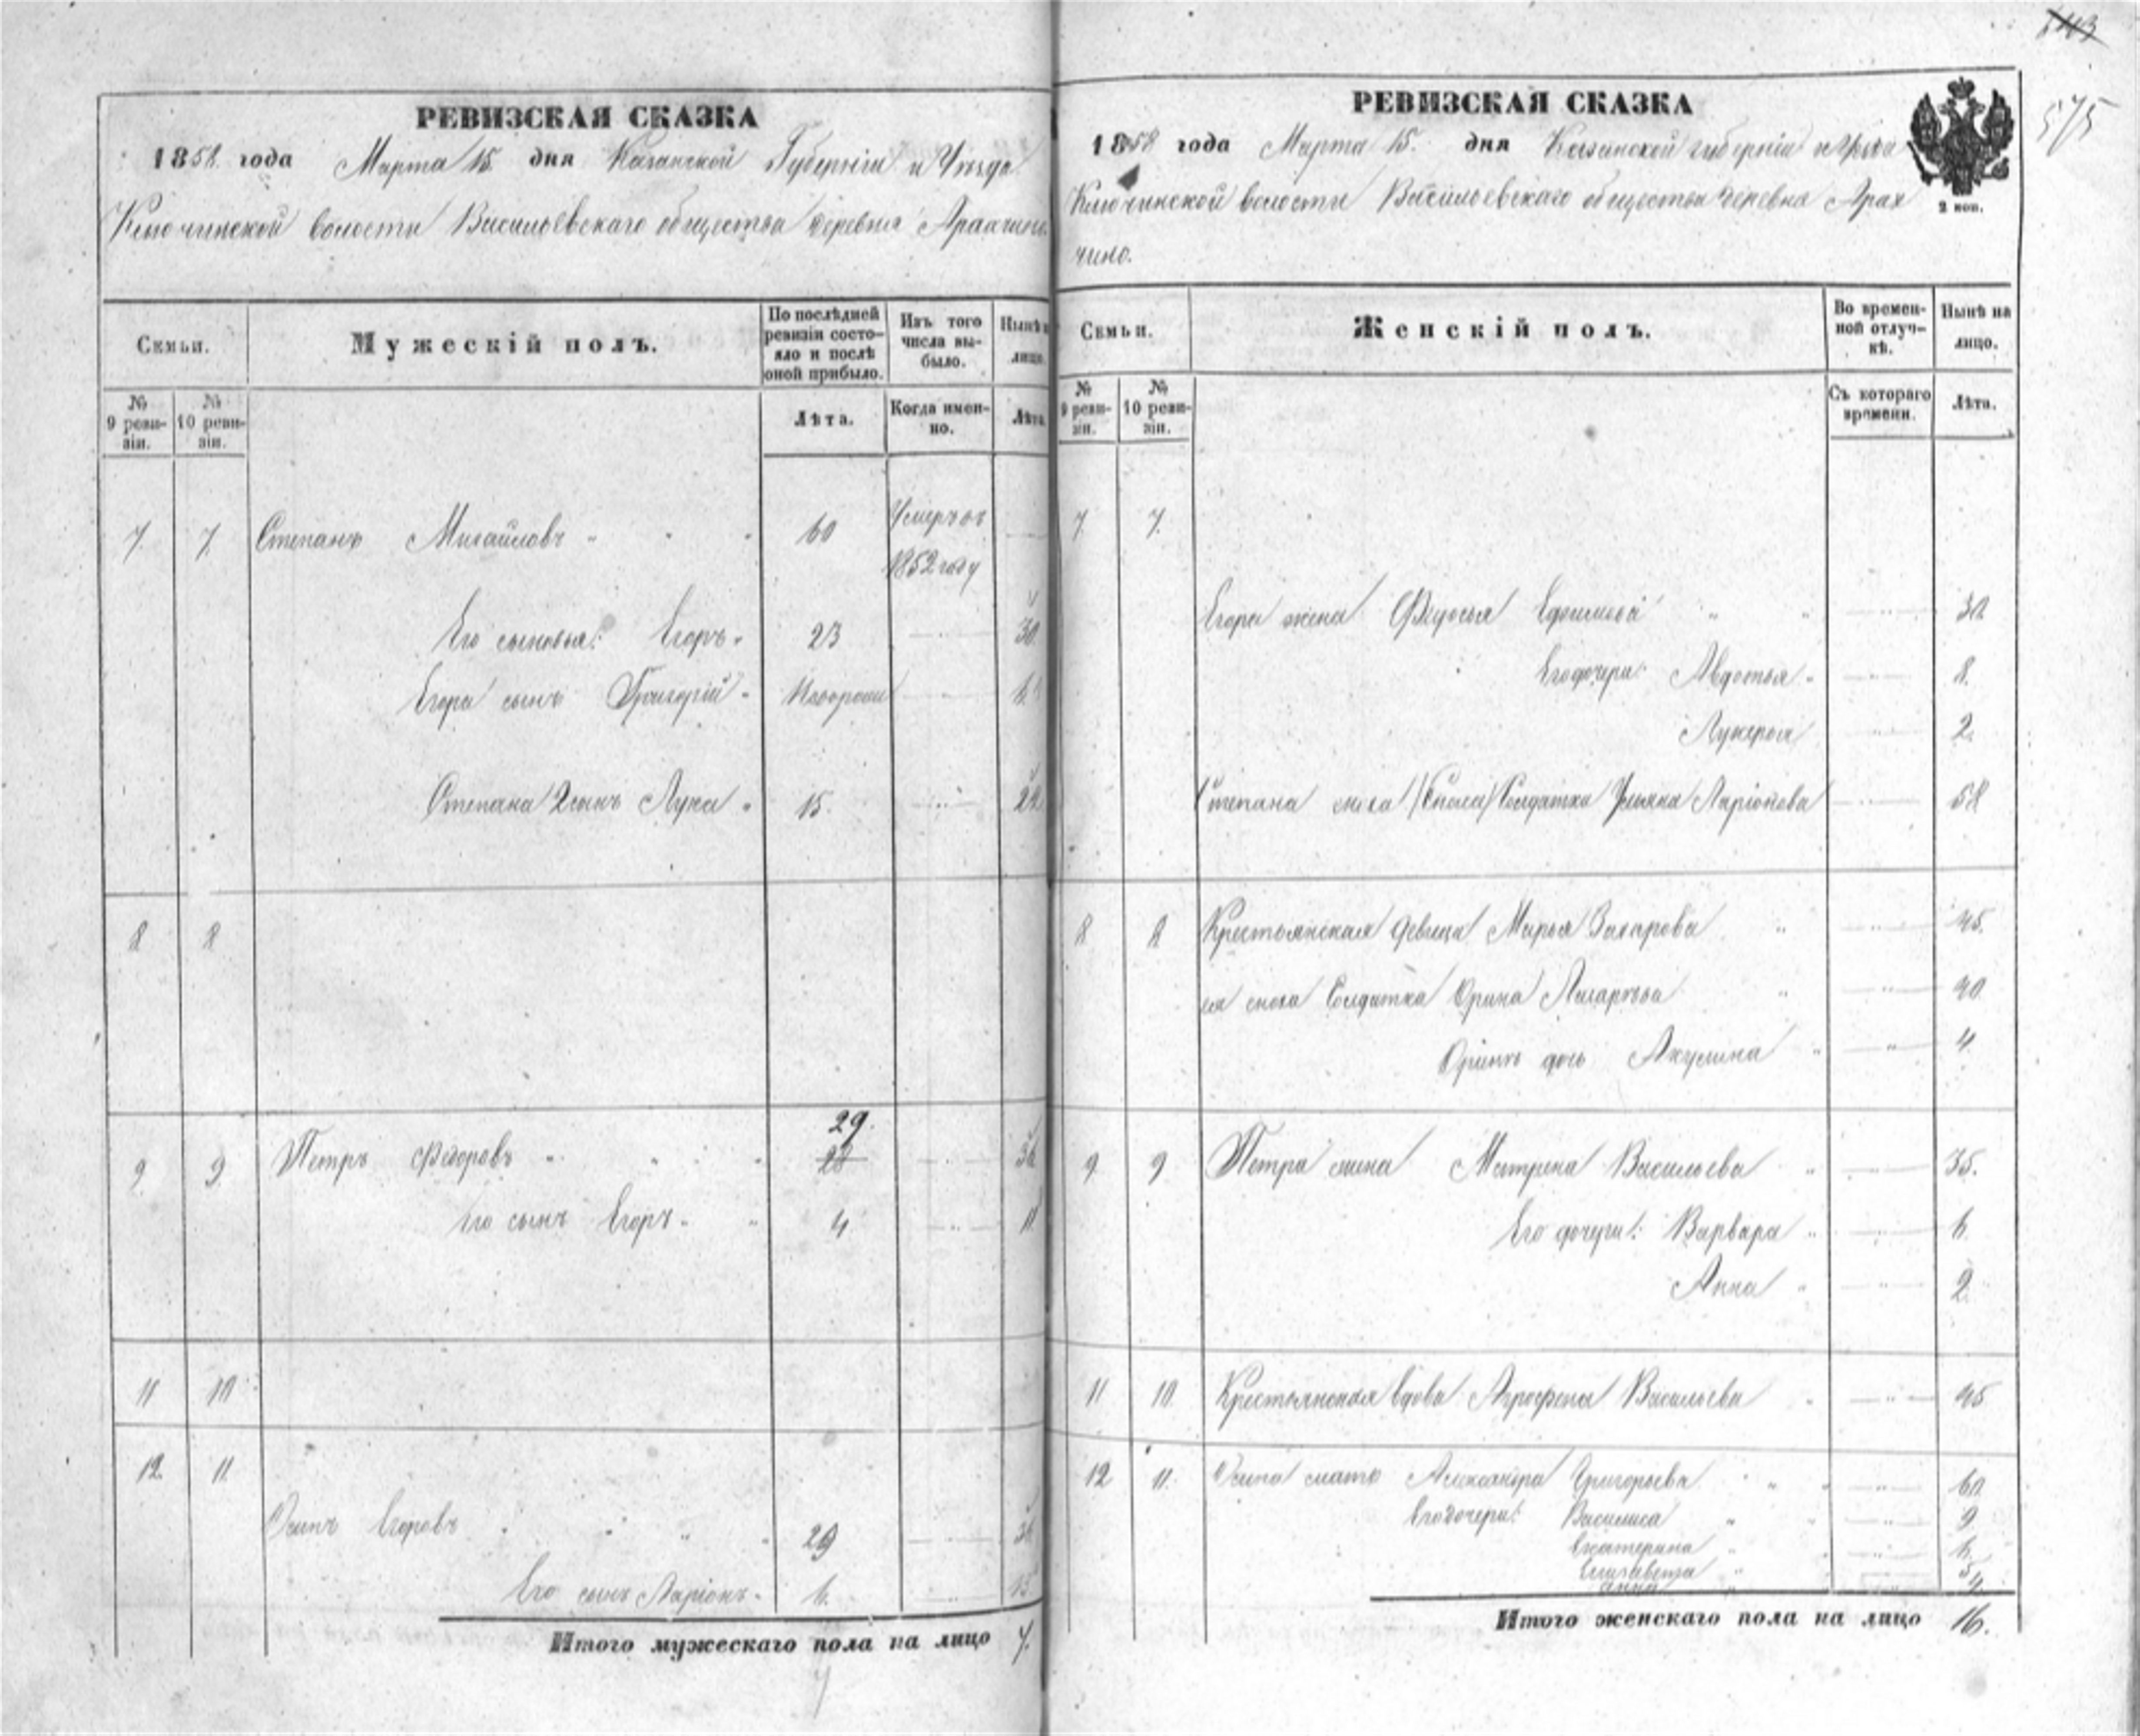 РЕВИЗСКАЯ СКАЗКА
1858 года Марта 15 дня Казанской Губерніи и Уѣзда
Ключинской волости Васильевскаго общества деревня Араачино
Семьи.
Мужескій полъ.
По послѣдней ревизіи состояло и послѣ оной прибыло.
Изъ того числа выбыло.
Нынѣ на лицо.
№ 9 ревизіи.
№ 10 ревизіи.
Лѣта.
Когда именно.
Лѣта.
7. 7. Степанъ Михайловъ 60 Умеръ въ
1852 году
Его сыновья: Егоръ 23 30
Егора сынъ Григорій
Степана 2 сынъ Лука 15. 22
8 8
29.
9 9. Петръ Федоровъ 28 36
Его сынъ Егоръ 4 11
11 10
12. 11.
Осипъ Егоровъ 29 36
Его сынъ Ларіонъ 15
Итого мужескаго пола на лицо 7.
7
543
575
РЕВИЗСКАЯ СКАЗКА
1858 года Марта 15. дня Казанской губерніи и Уѣзда
2 коп.
Ключинской волости Васильевскаго общества деревня Арах
чино.
Семьи.
Женскій полъ.
Во временной отлучкѣ.
Нынѣ на лицо.
№ 9 ревизіи.
№ 10 ревизіи.
Съ котораго времени.
Лѣта.
7. 7.
Егора жена Федосья Ефимова 30
Его дочери: Авдотья 8.
Лукерья 2.
Степана сноха Солдатка Ульяна Ларіонова 58
8 8 Крестьянская девица Марья Захарова 45.
ея сноха Солдатка Орина 40
Орины дочь Акулина 4
9 9 Петра жена Матрена Васильева 35.
Его дочери: Варвара 6.
Анна 2.
11 10. Крестьянская вдова Аграфена Васильева 45
12 11. Осипа мать Александра Григорьева 60
Его дочери: Василиса 9
Екатерина 6.
Елизавета 5
Анна 4
Итого женскаго пола на лицо 16.